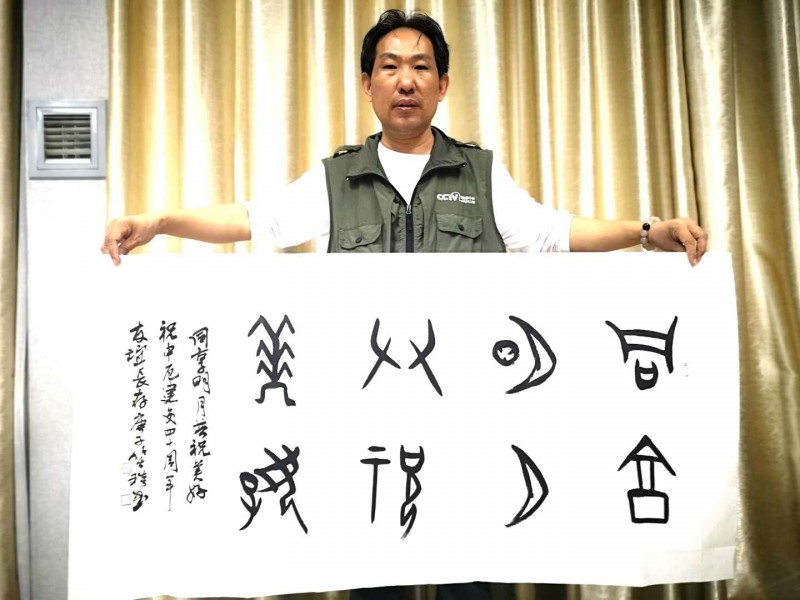 CCTV
同享
明月
共祝
美好
同享明月共祝美好
祝中厄建交四十周年
友誼長存庚子